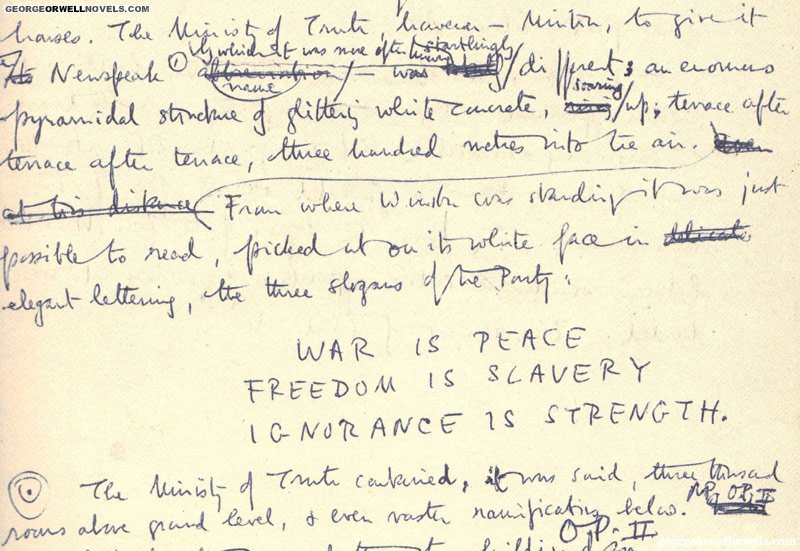 GEORGEORWELLNOVELS.COM
houses. The Ministry of Truth, however – Minitru, to give it
by which it was more often known startlingly
its Newspeak ① abbreviation name – was different; an enormous
soaring
pyramidal structure of glittering white concrete, rising up, terrace after
terrace after terrace, three hundred metres into the air. Even
at this distance From where Winston was standing it was just
possible to read, picked out on its white face in delicate
elegant lettering, the three slogans of the Party:
WAR IS PEACE
FREEDOM IS SLAVERY
IGNORANCE IS STRENGTH.
The Ministry of Truth contained, it was said, three thousand
rooms above ground level, & even vaster ramifications below.
O.P. II
georgeorwellnovels.com